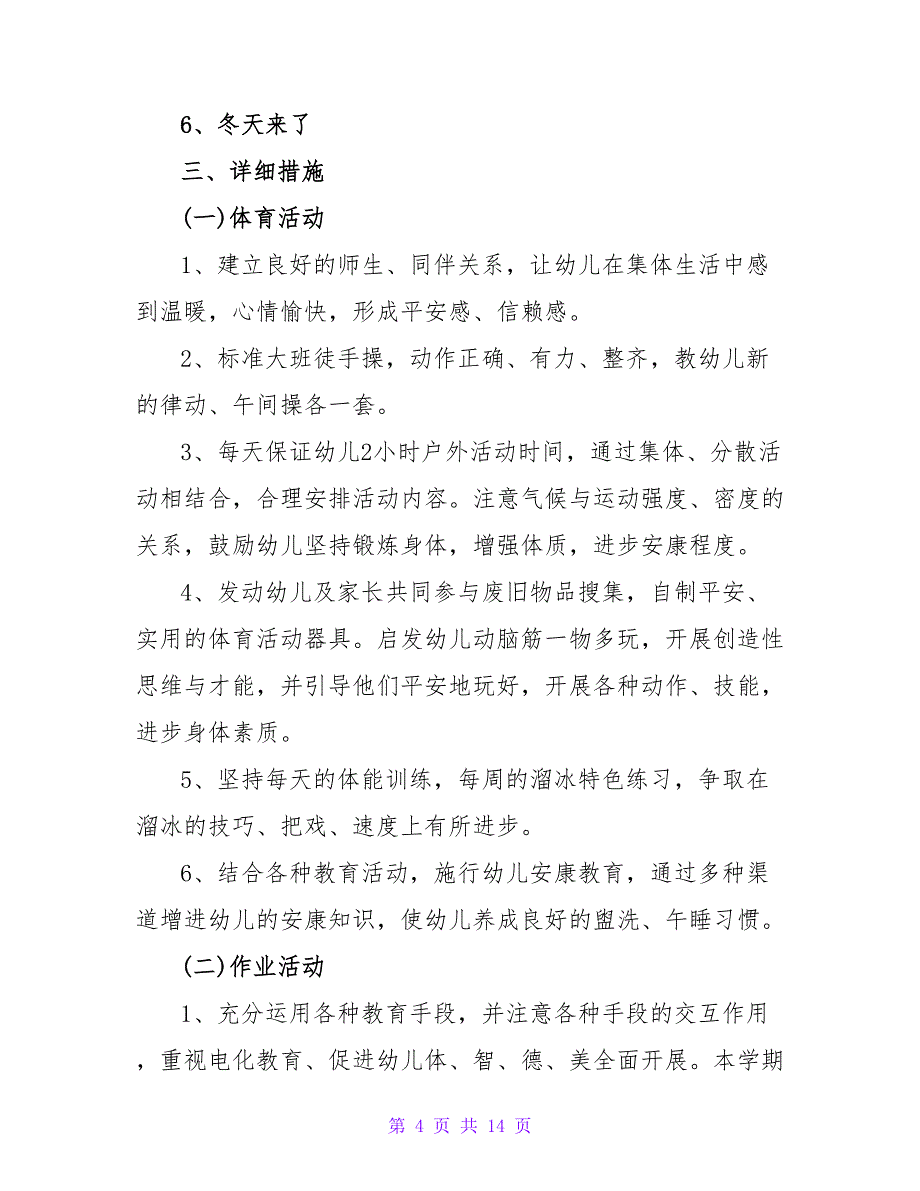 6、冬天来了
三、详细措施
(一)体育活动
1、建立良好的师生、同伴关系，让幼儿在集体生活中感
到温暖，心情愉快，形成平安感、信赖感。
2、标准大班徒手操，动作正确、有力、整齐，教幼儿新
的律动、午间操各一套。
3、每天保证幼儿2小时户外活动时间，通过集体、分散活
动相结合，合理安排活动内容。注意气候与运动强度、密度的
关系，鼓励幼儿坚持锻炼身体，增强体质，进步安康程度。
4、发动幼儿及家长共同参与废旧物品搜集，自制平安、
实用的体育活动器具。启发幼儿动脑筋一物多玩，开展创造性
思维与才能，并引导他们平安地玩好，开展各种动作、技能，
进步身体素质。
5、坚持每天的体能训练，每周的溜冰特色练习，争取在
溜冰的技巧、把戏、速度上有所进步。
6、结合各种教育活动，施行幼儿安康教育，通过多种渠
道增进幼儿的安康知识，使幼儿养成良好的盥洗、午睡习惯。
(二)作业活动
1、充分运用各种教育手段，并注意各种手段的交互作用
，重视电化教育、促进幼儿体、智、德、美全面开展。本学期
第 4 页 共 14 页